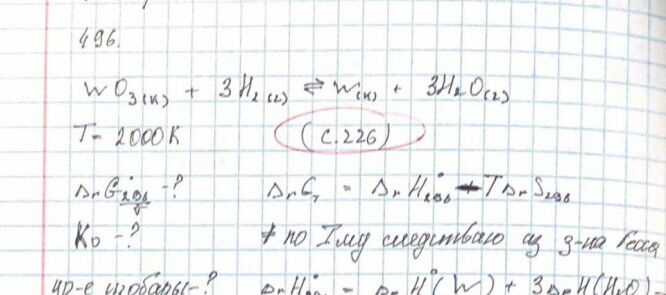 496.
WO₃(к) + 3H₂(г) ⇌ W(к) + 3H₂O(г)
T = 2000K (с.226)
ΔrG°₂₉₈ -? ΔrGт = ΔrH°₂₉₈ - TΔrS₂₉₈
K₀ -? * по Iму следствию из з-на Гесса
ур-е изобары -? ΔrH° = ΔrH°(W) + 3ΔrH(H₂O) -